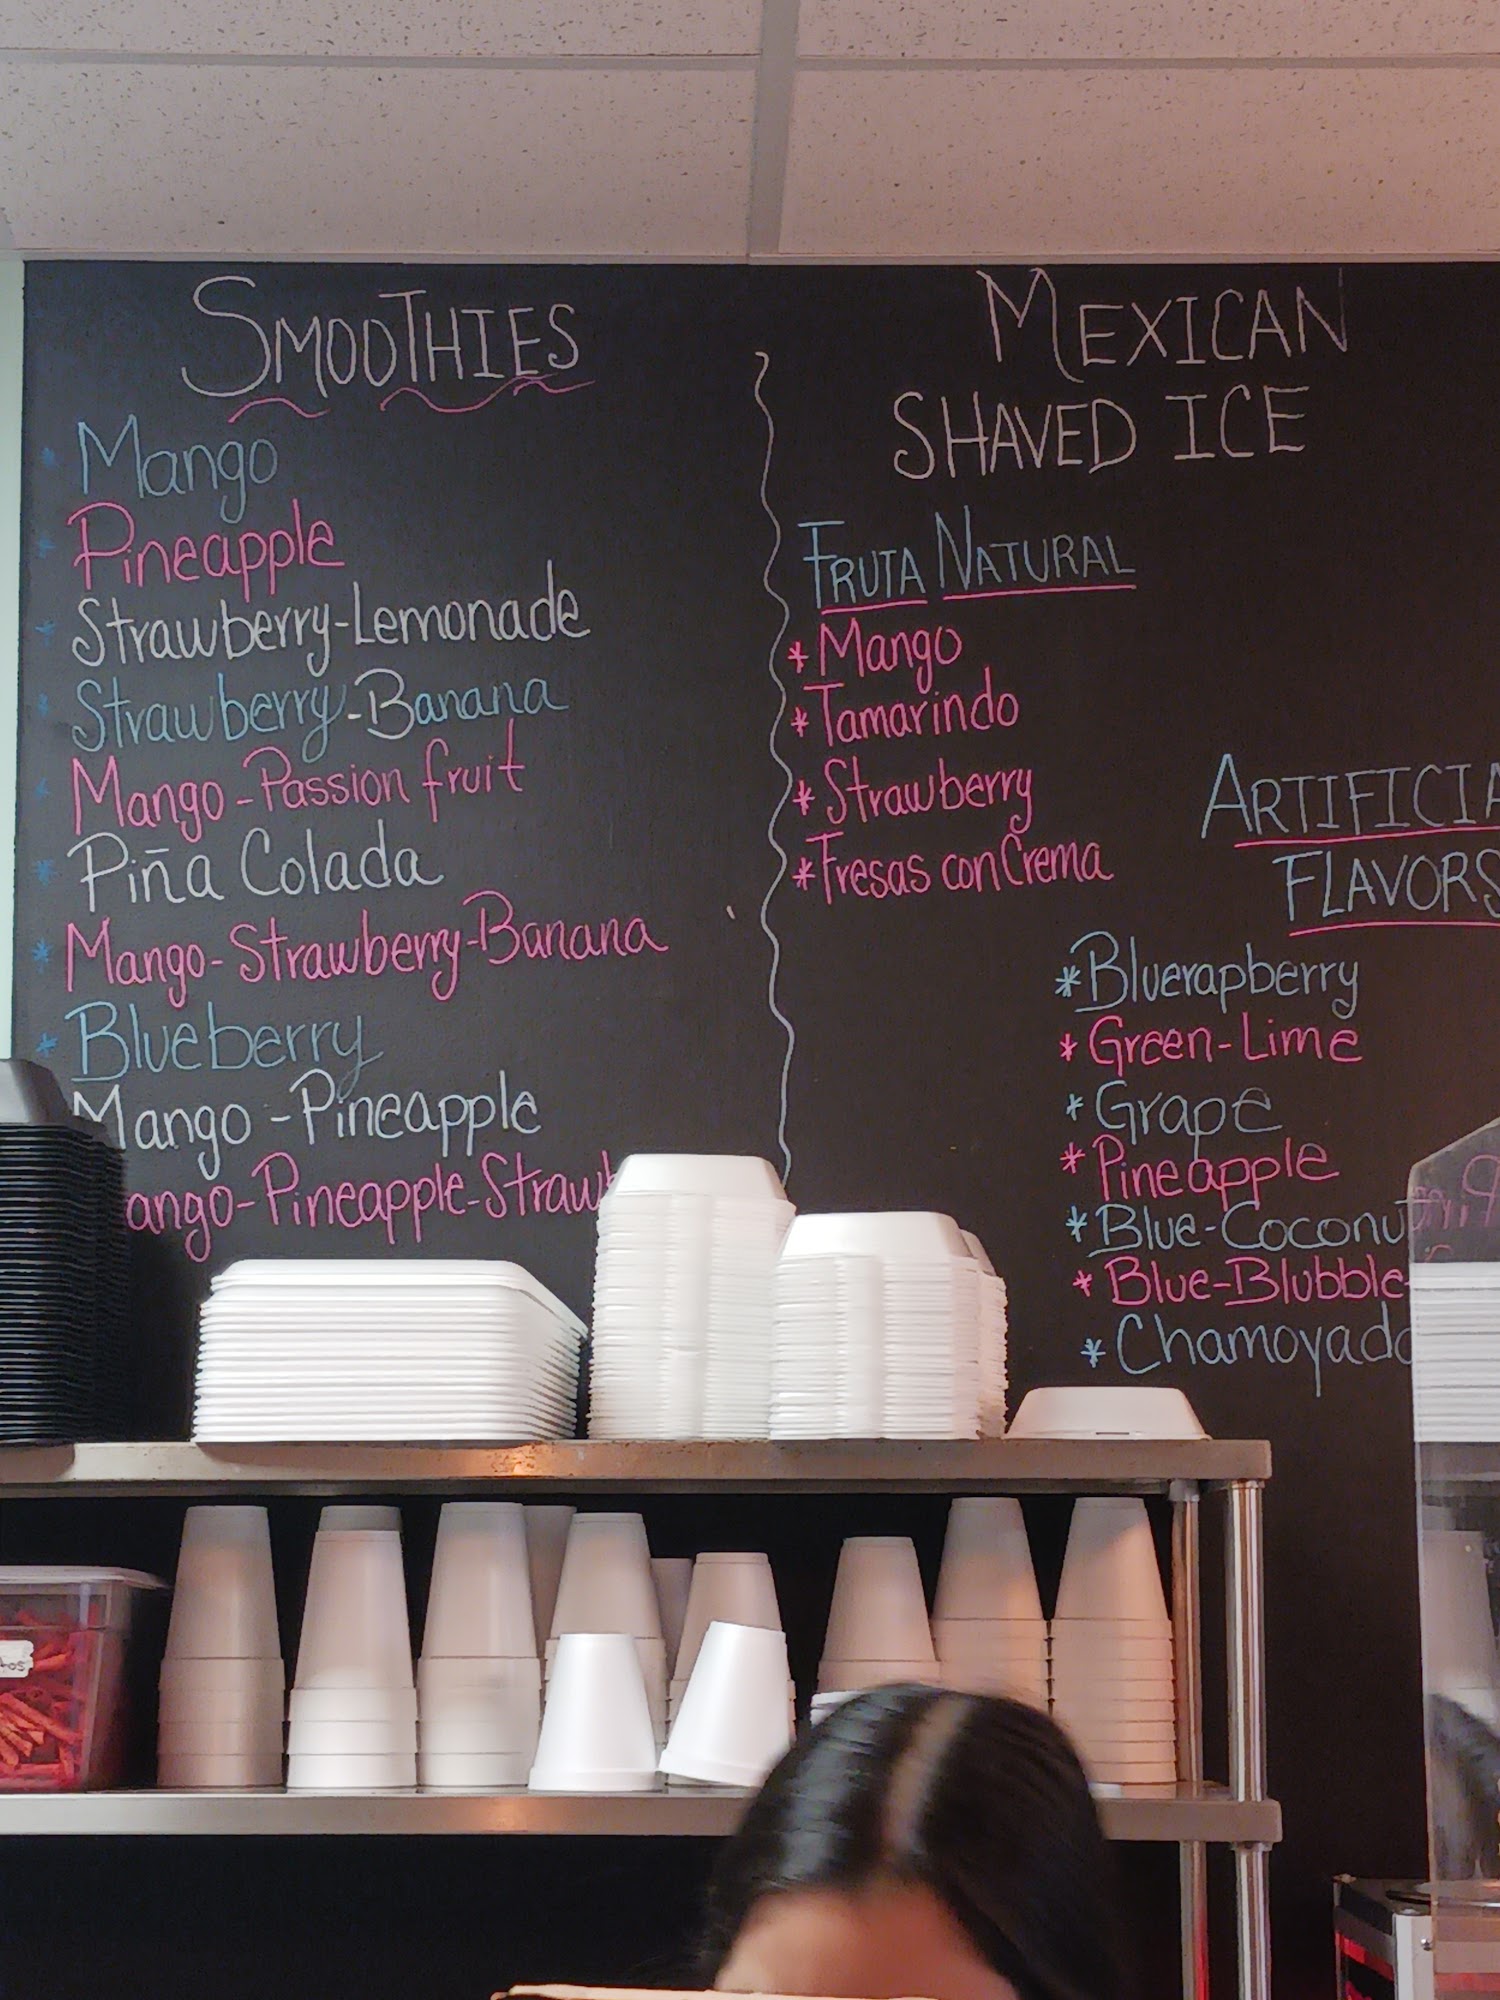 SMOOTHIES
* Mango
* Pineapple
* Strawberry-Lemonade
* Strawberry-Banana
* Mango-Passion fruit
Piña Colada
* Mango-Strawberry-Banana
* Blueberry
Mango-Pineapple
ango-Pineapple-Straw
MEXICAN
SHAVED ICE
FRUTA NATURAL
* Mango
* Tamarindo
* Strawberry
* Fresas con Crema
ARTIFICIA
FLAVORS
* Bluerapberry
* Green-Lime
* Grape
* Pineapple
* Blue-Coconut
* Blue-Blubble-
* Chamoyado